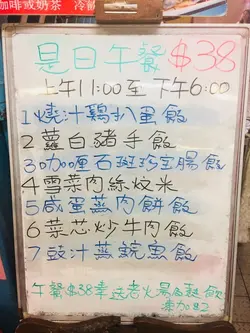 咖啡或奶茶
是日午餐 $38
上午11:00至下午6:00
1燒汁鷄扒蛋飯
2蘿白豬手飯
3咖喱石斑珍宝腸飯
4雪菜肉絲炆米
5咸蛋蒸肉餅飯
6菜芯炒牛肉飯
7豉汁蒸鯇魚飯
午餐$38幸送老火湯
凍加$2